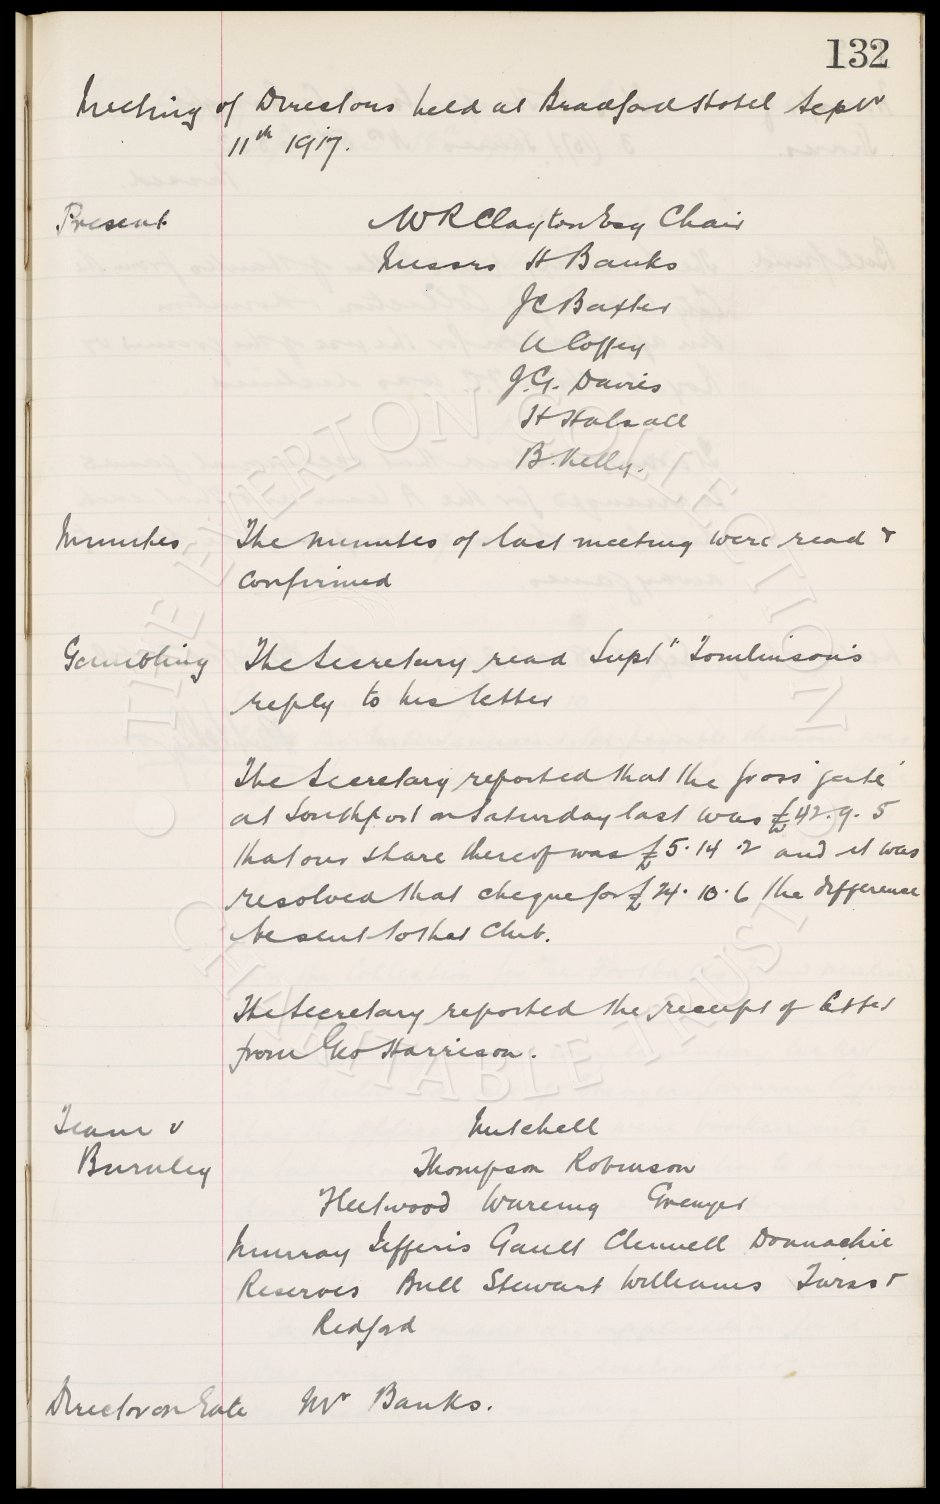 132
Meeting of Directors held at Bradford Hotel Septr
11th 1917.
Present W R Clayton Esq Chair
Messrs H Banks
J C Baxter
A Coffey
J. G. Davies
H Halsall
B. Kelly.
Minutes The minutes of last meeting were read &
confirmed
Gambling The Secretary read Supt Tomlinson's
reply to his letter
The Secretary reported that the gross 'gate'
at Southport on Saturday last was £42. 9. 5
that our share thereof was £5. 14. 2 and it was
resolved that cheque for £24. 10. 6 the difference
be sent to that Club.
The Secretary reported the receipt of letter
from Geo Harrison.
Team v Mitchell
Burnley Thompson Robinson
Fleetwood Wareing Grenyer
Murray Jefferis Gault Clennell Donnachie
Reserves Bull Stewart Williams Twiss &
Redford
Director on Gate Mr Banks.
THE EVERTON COLLECTION
CHARITABLE TRUST